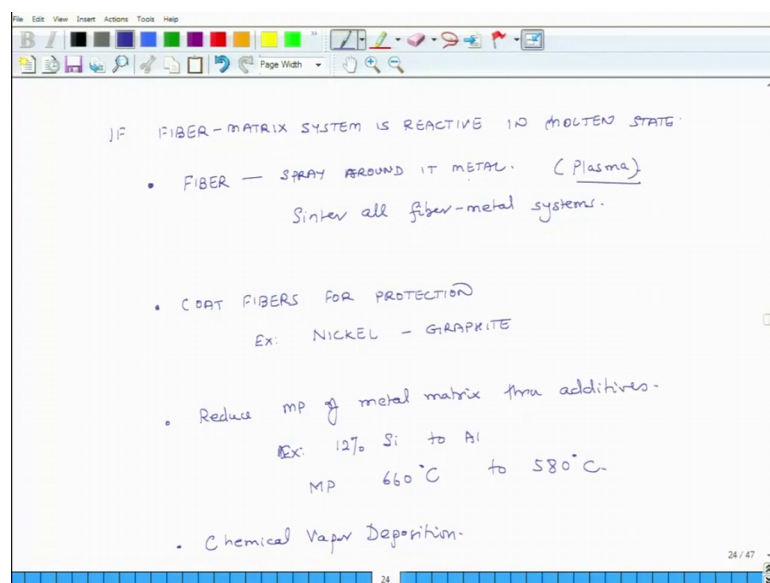 File Edit View Insert Actions Tools Help
B I
Page Width
IF FIBER-MATRIX SYSTEM IS REACTIVE IN MOLTEN STATE.
• FIBER — SPRAY AROUND IT METAL. (Plasma)
Sinter all fiber-metal systems.
• COAT FIBERS FOR PROTECTION
Ex: NICKEL - GRAPHITE
• Reduce MP of metal matrix thru additives.
Ex: 12% Si to Al
MP 660°C to 580°C.
• Chemical Vapor Deposition.
24 / 47
24